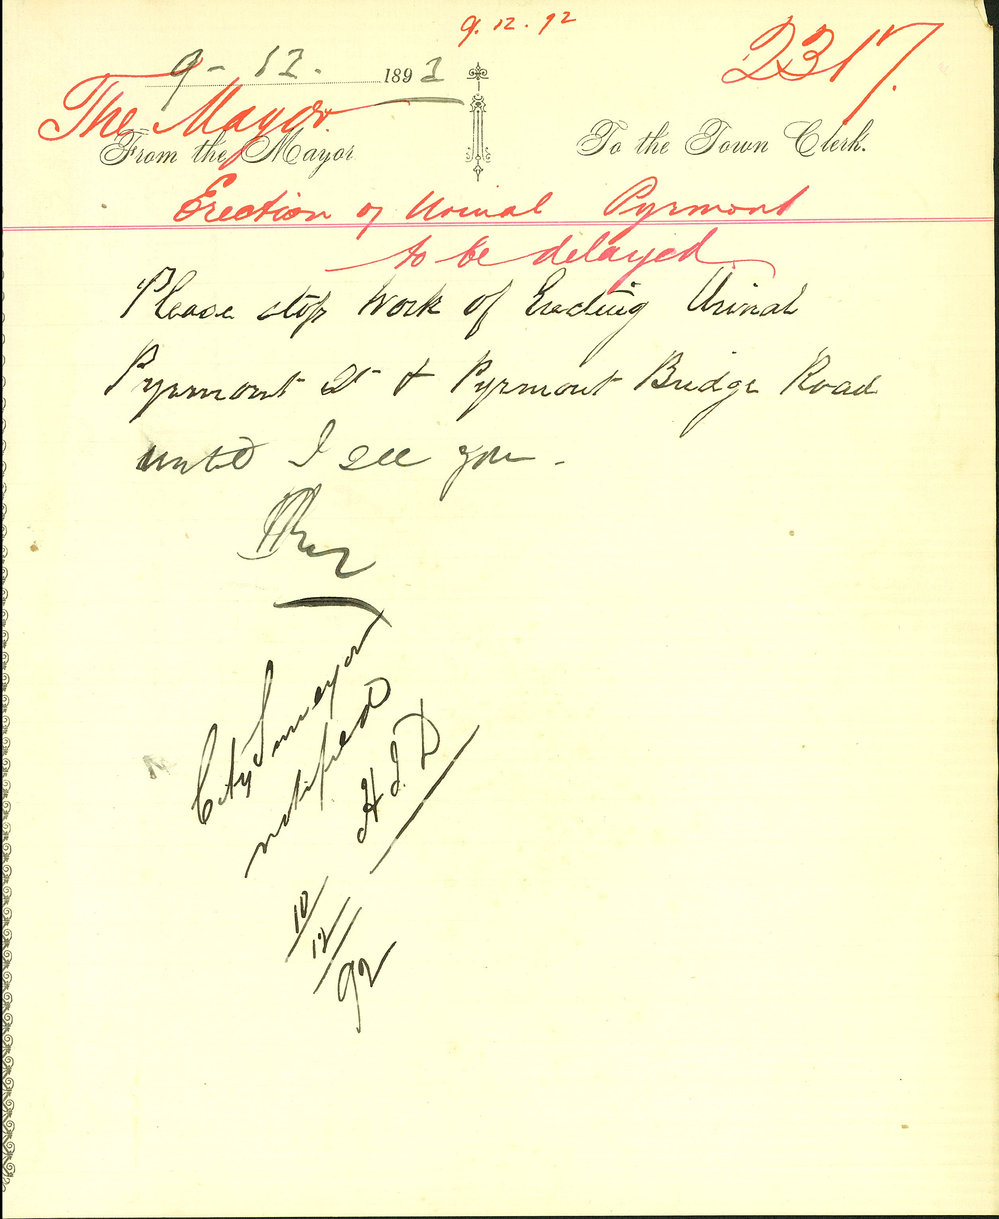 9. 12. 92
2317.
9 - 12. 1892
The Mayor.
From the Mayor
To the Town Clerk.
Erection of Urinal Pyrmont
to be delayed
Please stop work of Erecting Urinal
Pyrmont St & Pyrmont Bridge Road
until I see you -
City Surveyor
notified
H.J.D
10/12/92